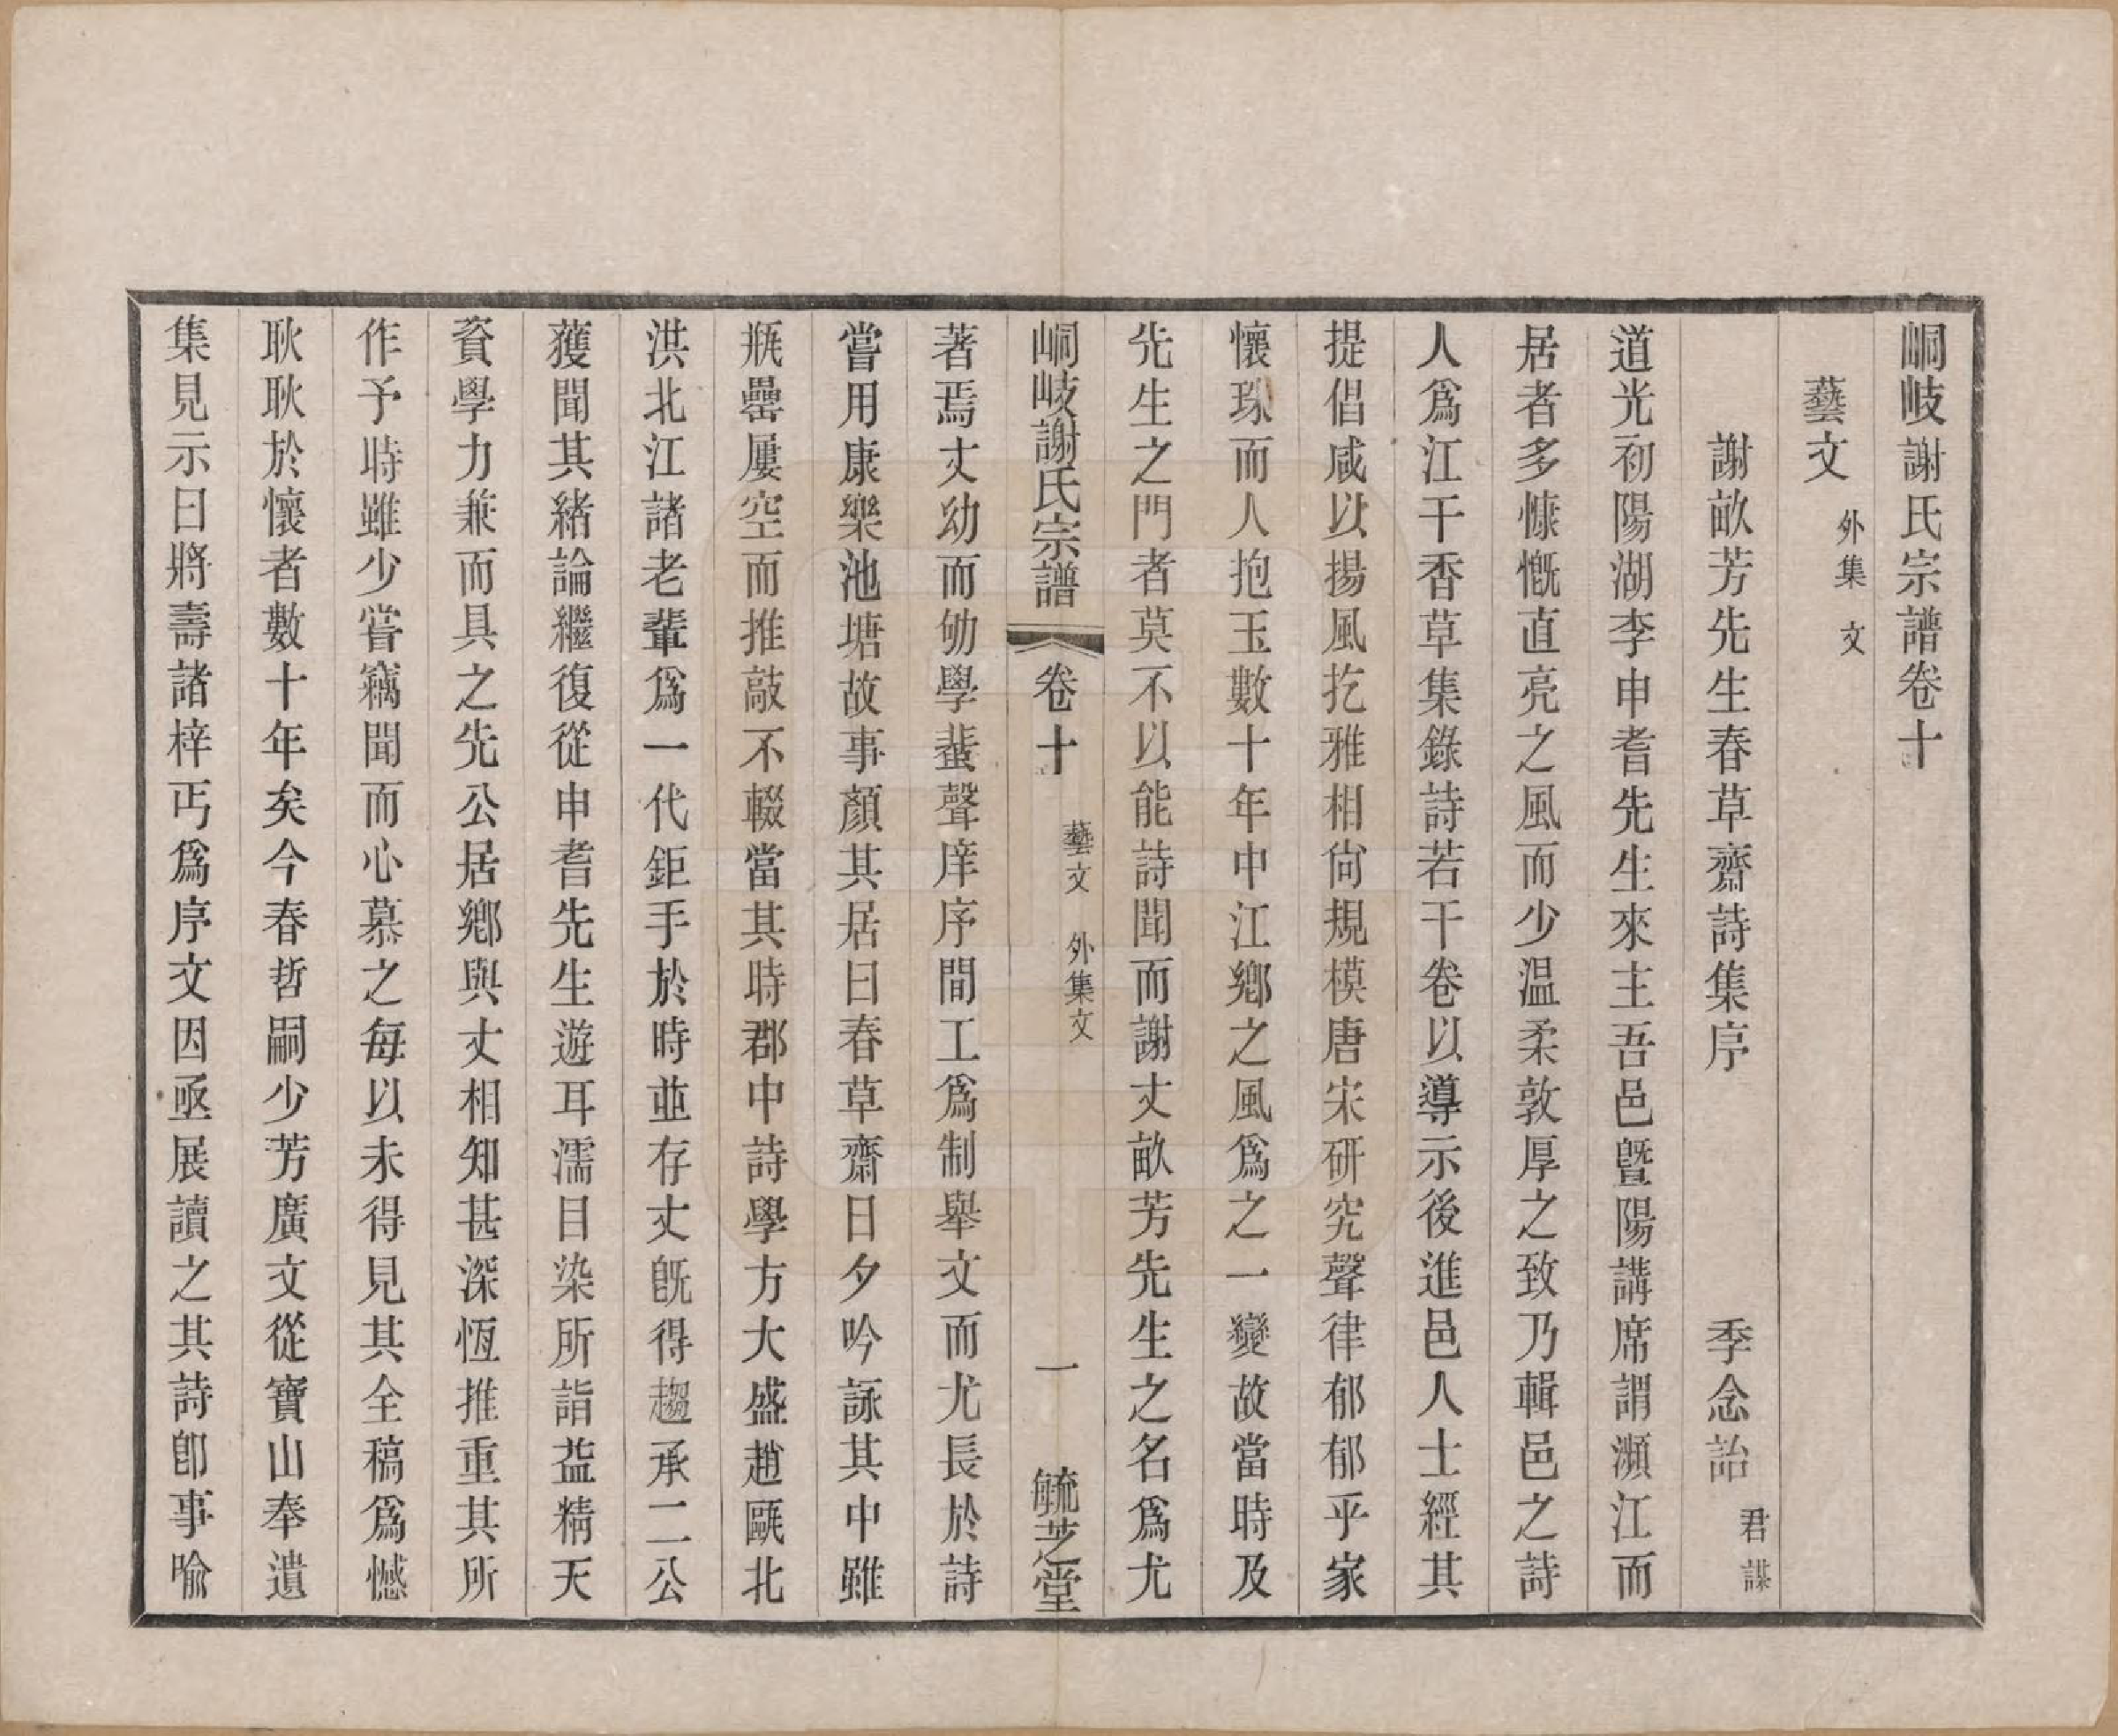 峒岐謝氏宗譜卷十
藝文 外集 文
謝畝芳先生春草齋詩集序 季念詒 君謀
道光初陽湖李申耆先生來主吾邑曁陽講席謂瀕江而
居者多慷慨直亮之風而少温柔敦厚之致乃輯邑之詩
人爲江干香草集錄詩若干卷以導示後進邑人士經其
提倡咸以揚風扢雅相尙規模唐宋研究聲律郁郁乎家
懷珠而人抱玉數十年中江鄉之風爲之一變故當時及
先生之門者莫不以能詩聞而謝丈畝芳先生之名爲尤
峒岐謝氏宗譜 卷十 藝文 外集文 一 毓芝堂
著焉丈幼而劬學蜚聲庠序間工爲制舉文而尤長於詩
嘗用康樂池塘故事顏其居曰春草齋日夕吟詠其中雖
瓶罍屢空而推敲不輟當其時郡中詩學方大盛趙甌北
洪北江諸老輩爲一代鉅手於時並存丈旣得趨承二公
獲聞其緒論繼復從申耆先生遊耳濡目染所詣益精天
資學力兼而具之先公居鄉與丈相知甚深恆推重其所
作予時雖少嘗竊聞而心慕之每以未得見其全稿爲憾
耿耿於懷者數十年矣今春哲嗣少芳廣文從寶山奉遺
集見示曰將壽諸梓丐爲序文因亟展讀之其詩卽事喻